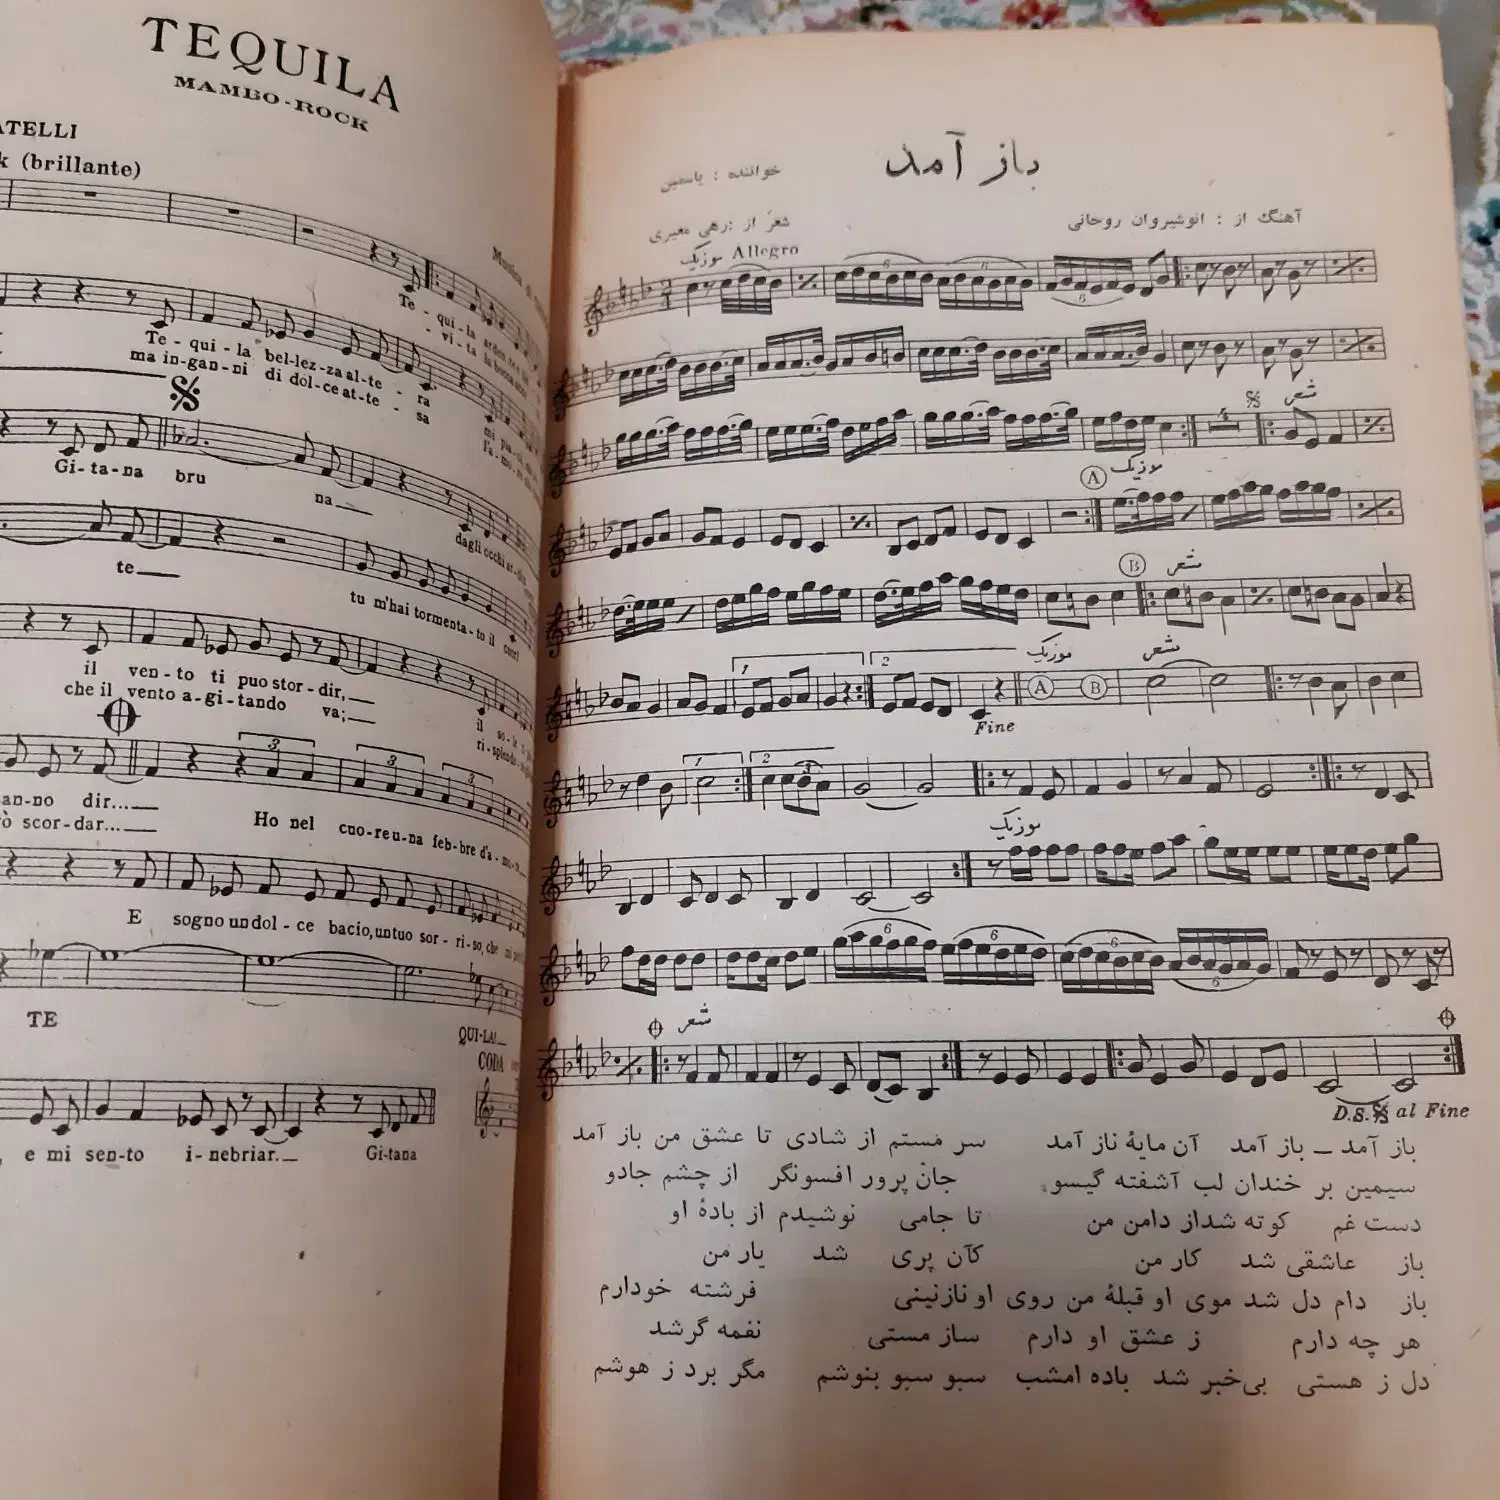 TEQUILA
MAMBO-ROCK
ATELLI
k (brillante)
Te - qui - la
- vi - ta la bocca
Te - qui - la bel-lez-za al-te - ra
ma in-gan-ni di dol-ce at-te - sa
Gi-ta-na bru na
dagli occhi
te
tu m'hai tormenta-to il cuor!
il ven-to ti puo stor-dir,
che il vento a-gi-tando va;
3 3 3
an-no dir...
ò scor-dar...
Ho nel cuo-re u-na feb-bre d'a-
E sogno un dol-ce bacio, un tuo sor-ri-so, che
TE
QUI-LA!
CODA
, e mi sen-to i-nebriar.
Gi-tana
باز آمد
خواننده : یاسمین
آهنگ از : انوشیروان روحانی
شعر از :رهی معیری
موزیک Allegro
6 6 6
شعر
A موزیک
B شعر
1 2 موزیک شعر
A B
Fine
1 2
موزیک
6 6 6 6
شعر
D.S. al Fine
باز آمد ـ باز آمد آن مایهٔ ناز آمد سر مستم از شادی تا عشق من باز آمد
سیمین بر خندان لب آشفته گیسو. جان پرور افسونگر از چشم جادو
دست غم کوته شداز دامن من تا جامی نوشیدم از بادهٔ او
باز عاشقی شد کار من کآن پری شد یار من
باز دام دل شد موی او قبلهٔ من روی او نازنینی فرشته خودارم
هر چه دارم ز عشق او دارم ساز مستی نغمه گرشد
دل ز هستی بی‌خبر شد باده امشب سبو سبو بنوشم مگر برد ز هوشم